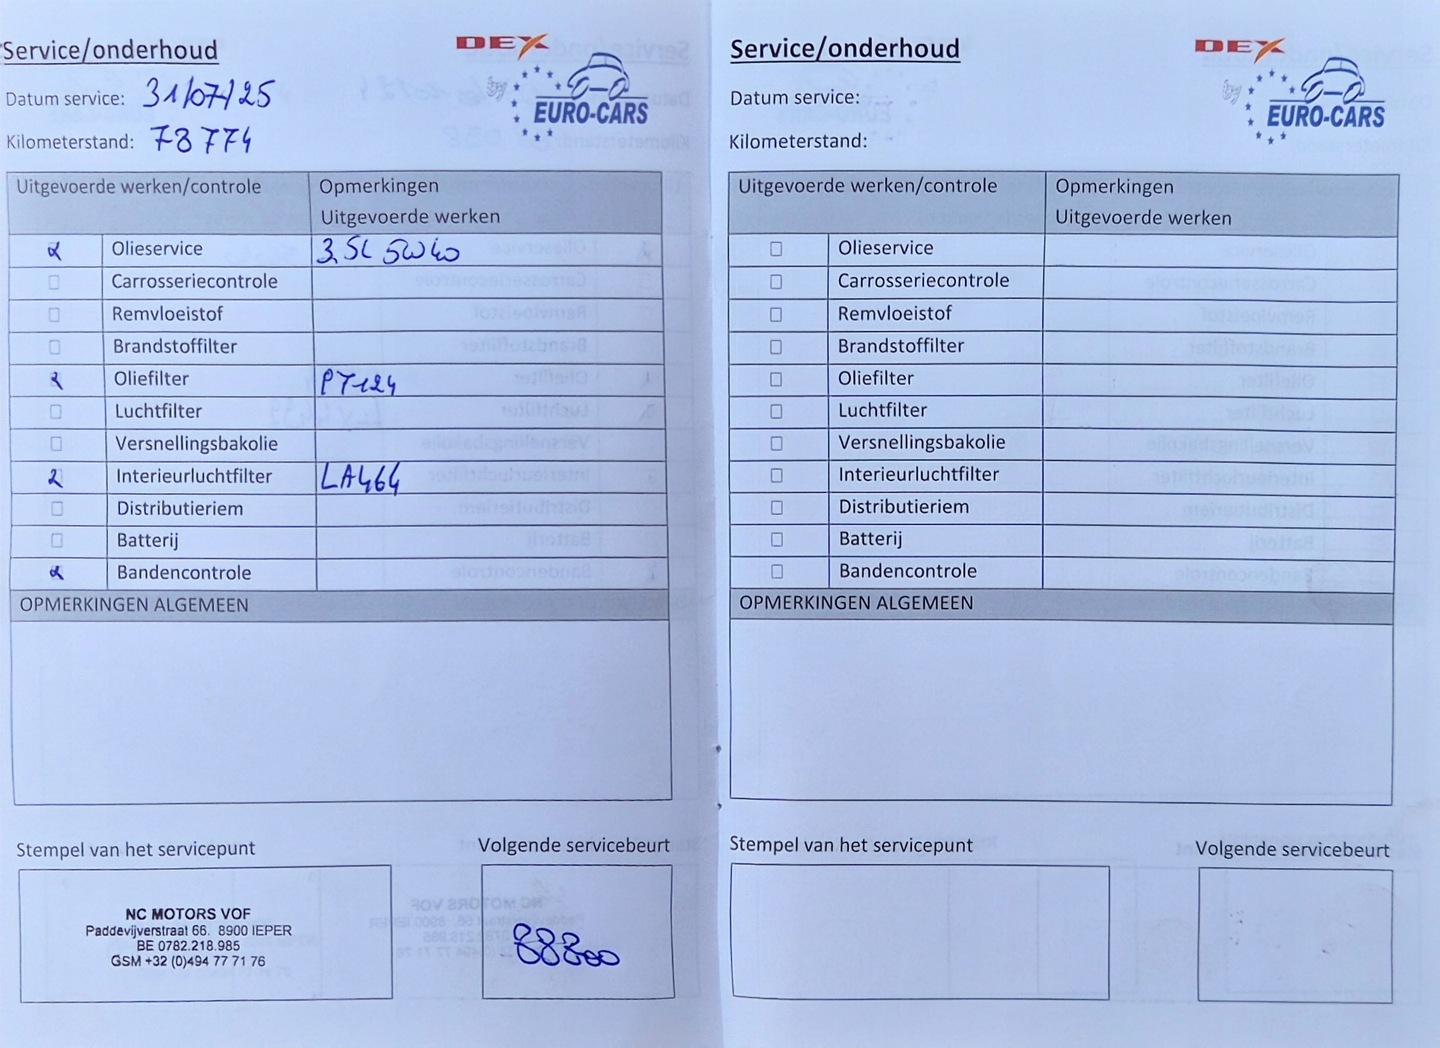 Service/onderhoud
DEX
EURO-CARS
Datum service: 31/07/25
Kilometerstand: 78774
Uitgevoerde werken/controle Opmerkingen
Uitgevoerde werken
Olieservice 3,5L 5W40
Carrosseriecontrole
Remvloeistof
Brandstoffilter
Oliefilter
Luchtfilter
Versnellingsbakolie
Interieurluchtfilter LA464
Distributieriem
Batterij
Bandencontrole
OPMERKINGEN ALGEMEEN
Stempel van het servicepunt
Volgende servicebeurt
NC MOTORS VOF
Paddevijverstraat 66. 8900 IEPER
BE 0782.218.985
GSM +32 (0)494 77 71 76
88800
Service/onderhoud
DEX
EURO-CARS
Datum service:
Kilometerstand:
Uitgevoerde werken/controle Opmerkingen
Uitgevoerde werken
Olieservice
Carrosseriecontrole
Remvloeistof
Brandstoffilter
Oliefilter
Luchtfilter
Versnellingsbakolie
Interieurluchtfilter
Distributieriem
Batterij
Bandencontrole
OPMERKINGEN ALGEMEEN
Stempel van het servicepunt
Volgende servicebeurt